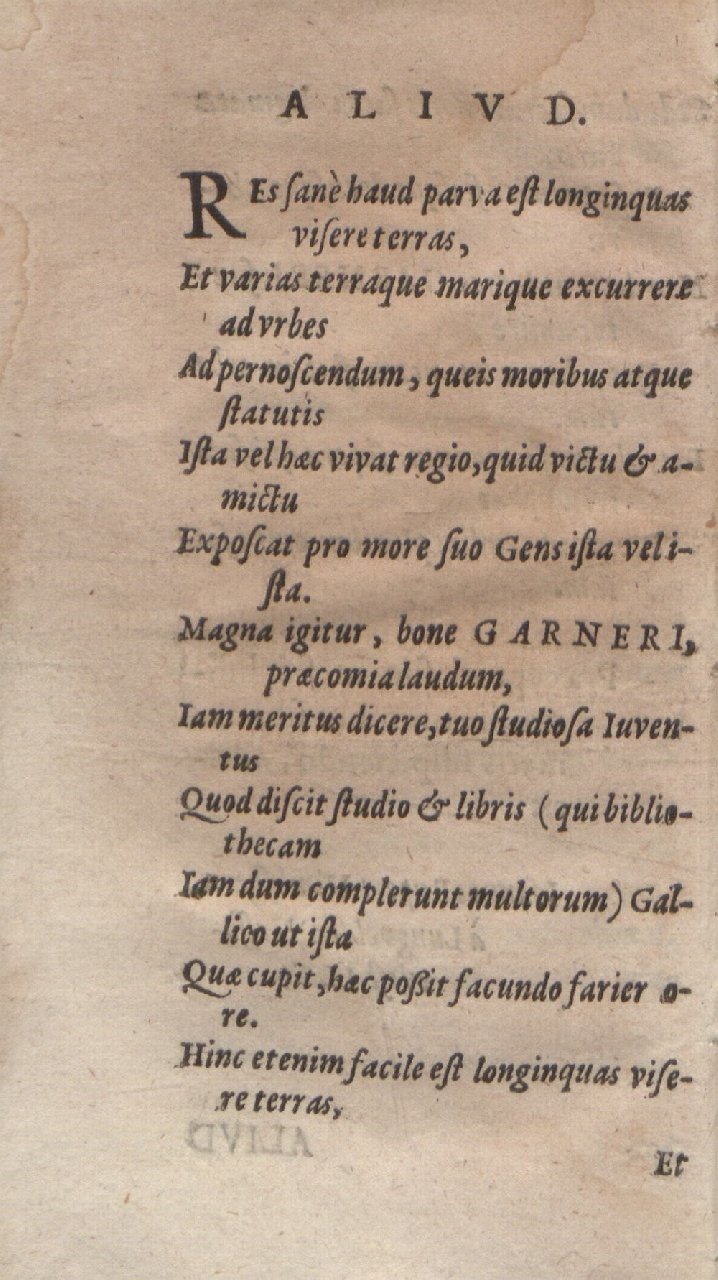 ALIVD.
REs ſanè haud parva eſt longinquas
viſere terras,
Et varias terraque marique excurrere
ad vrbes
Ad pernoſcendum, queis moribus atque
ſtatutis
Iſta vel hæc vivat regio, quid victu & a-
mictu
Expoſcat pro more ſuo Gens iſta vel i-
ſta.
Magna igitur, bone GARNERI,
præcomia laudum,
Iam meritus dicere, tuo ſtudioſa Iuven-
tus
Quod diſcit ſtudio & libris (qui biblio-
thecam
Iam dum complerunt multorum) Gal-
lico ut iſta
Quæ cupit, hæc poßit facundo farier o-
re.
Hinc etenim facile eſt longinquas viſe-
re terras,
Et